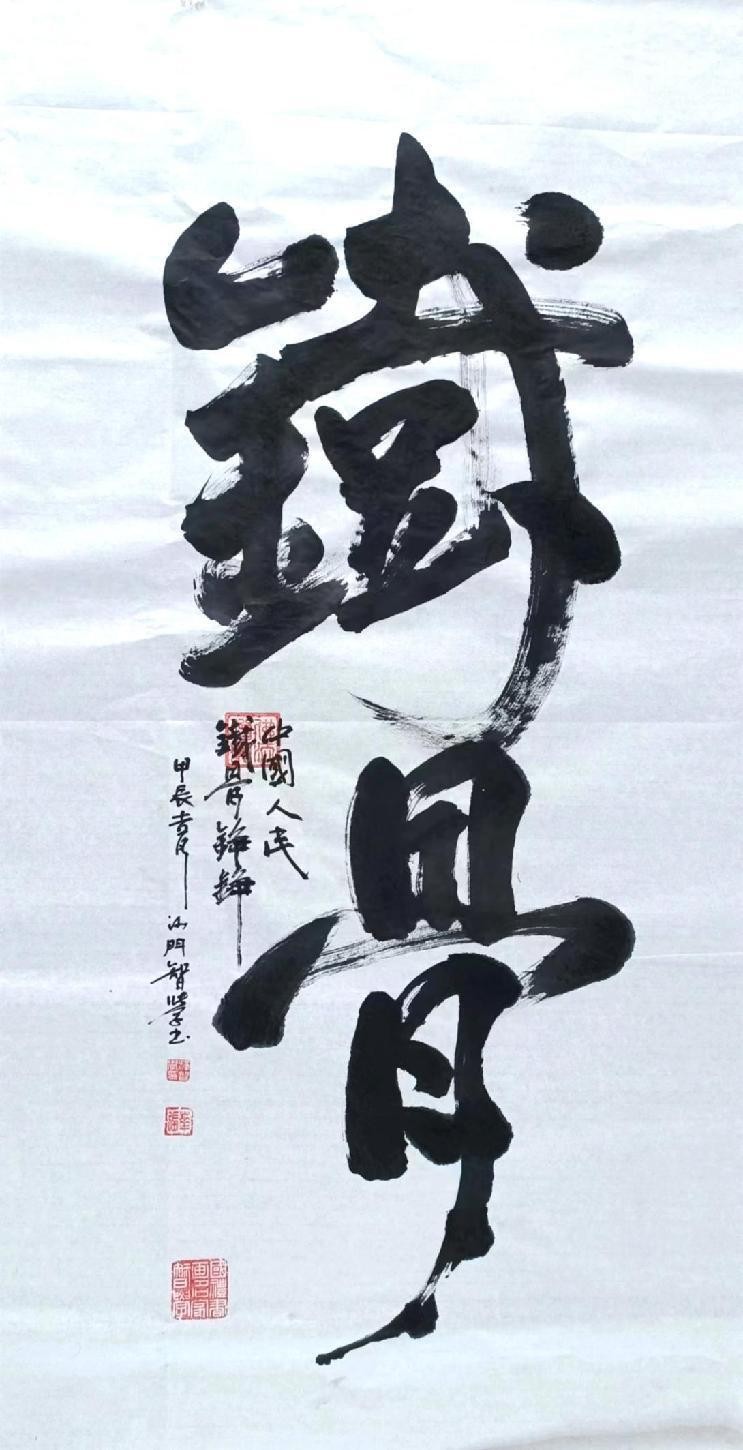 鐵骨
中國人民
鐵骨錚錚
甲辰 沙門智學书